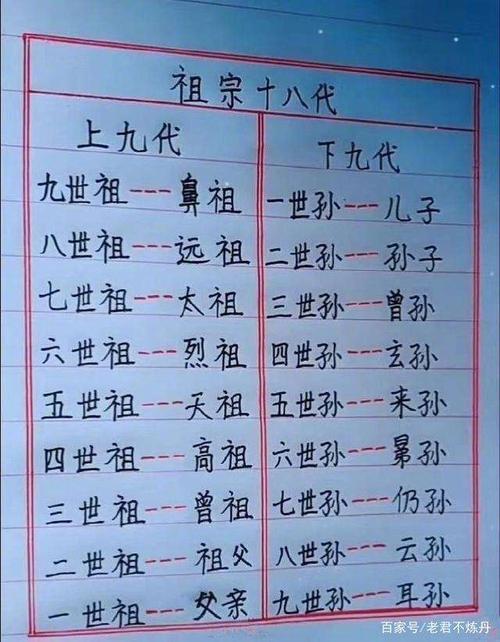 祖宗十八代
上九代
九世祖---鼻祖
八世祖---远祖
七世祖---太祖
六世祖---烈祖
五世祖---天祖
四世祖---高祖
三世祖---曾祖
二世祖---祖父
一世祖---父亲
下九代
一世孙---儿子
二世孙---孙子
三世孙---曾孙
四世孙---玄孙
五世孙---来孙
六世孙---晜孙
七世孙---仍孙
八世孙---云孙
九世孙---耳孙
百家号/老君不炼丹